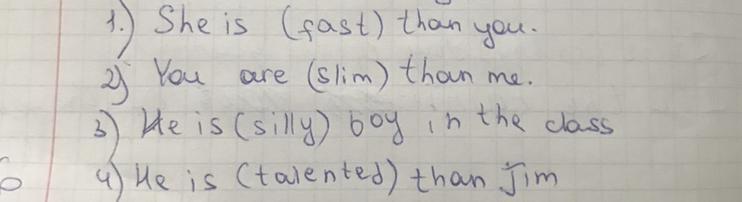 1.) She is (fast) than you.
2) You are (slim) than me.
3) He is (silly) boy in the class
4) He is (talented) than Jim